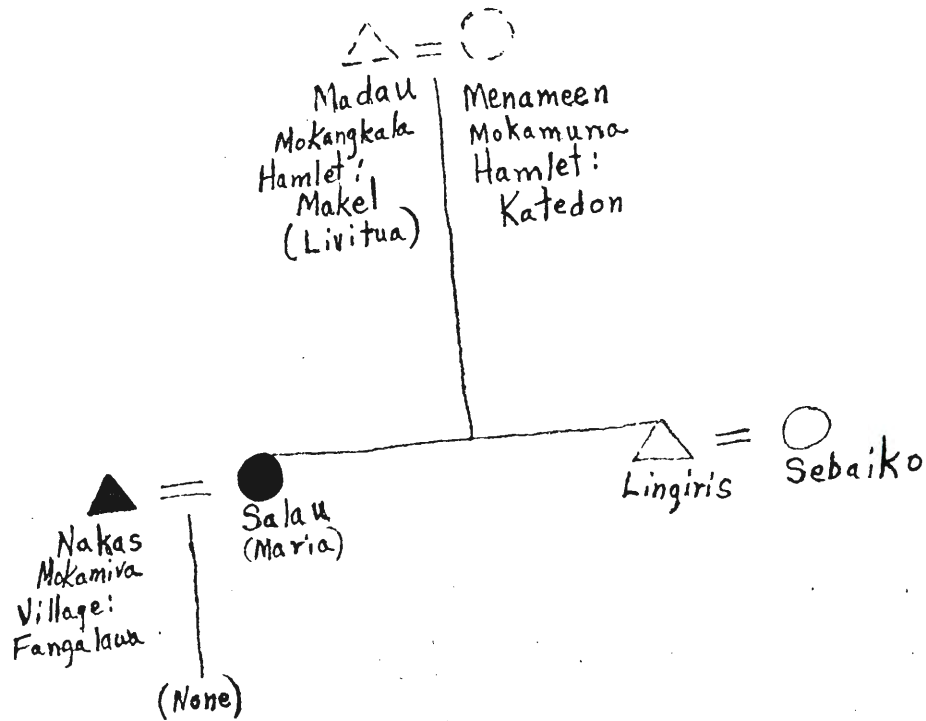 Madau
Mokangkala
Hamlet:
Makel
(Livitua)
Menameen
Mokamuna
Hamlet:
Katedon
Nakas
Mokamiva
Village:
Fangalawa
Salau
(Maria)
(None)
Lingiris
Sebaiko